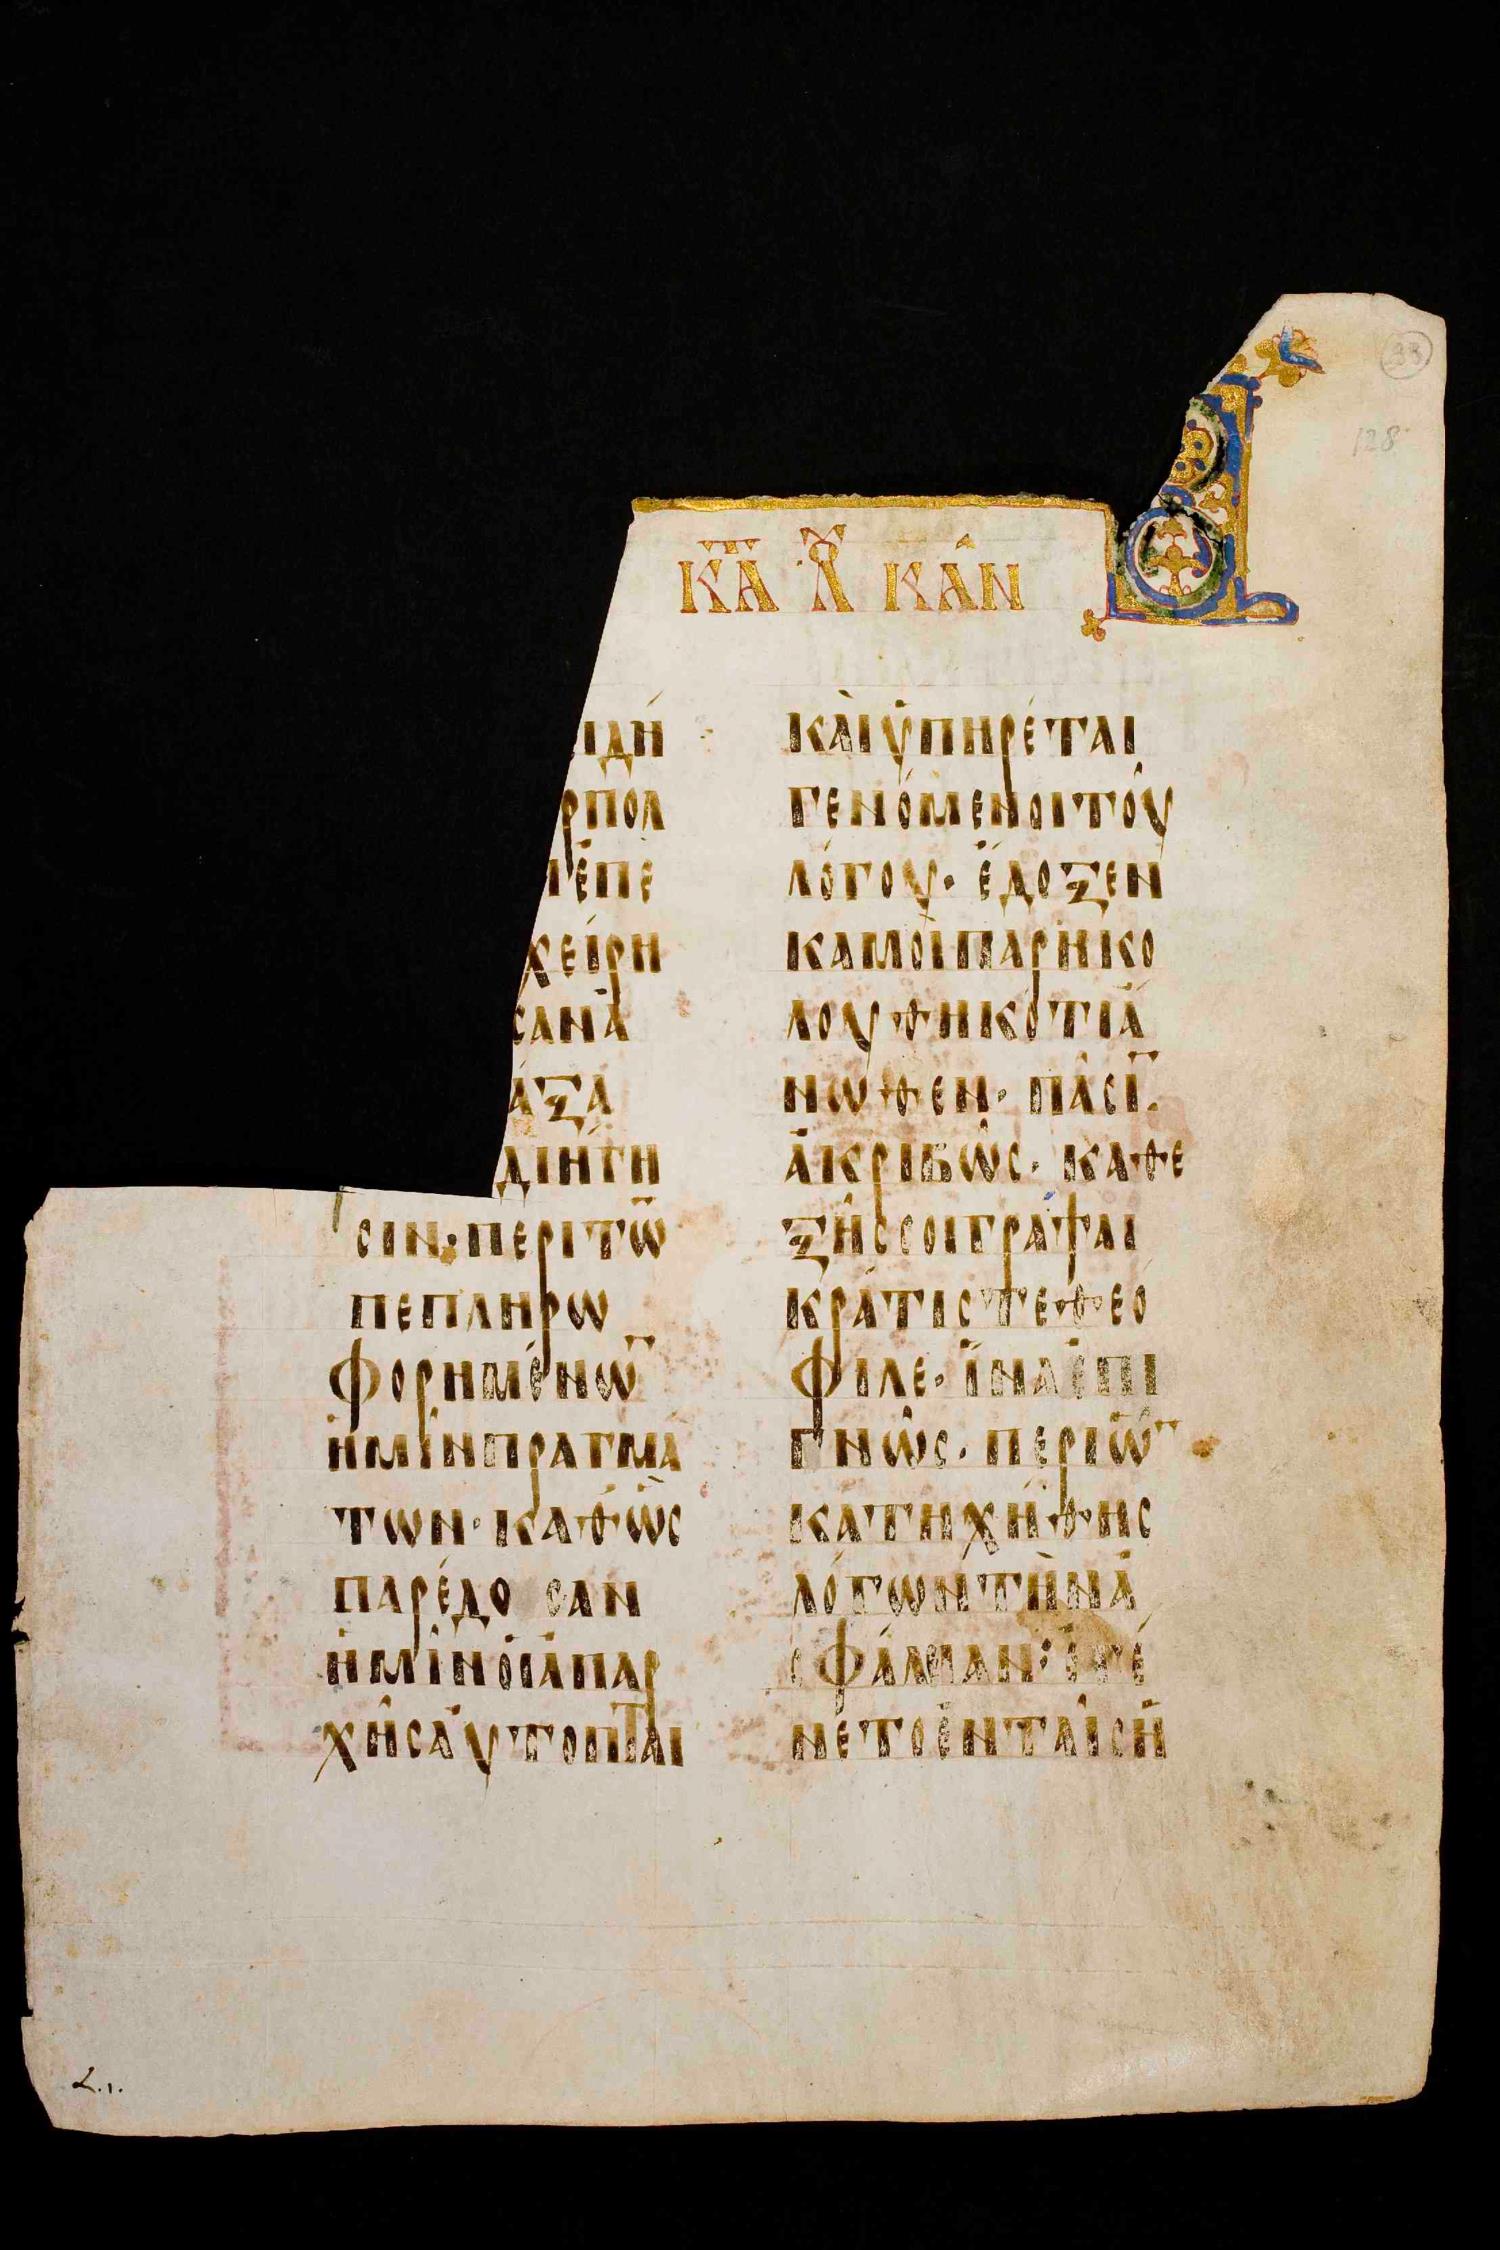 33
128
ΚΑ ΛΧ ΚΑΝ
ΙΔΗ
ΡΠΟΛ
ΕΠΕ
ΧΕΙΡΗ
ΣΑΝΑ
ΑΞΑ
ΔΙΗΓΗ
ϹΙΝ·ΠΕΡΙΤῶ
ΠΕΠΛΗΡΩ
ΦΟΡΗΜΕΝῶ
ἩΜῖΝΠΡΑΓΜΆ
ΤΩΝ·ΚΑΘῺϹ
ΠΑΡΈΔΟϹΑΝ
ἩΜῖΝΟἹἈΠΑΡ
ΧΗ͂ϹΑΥ̓ΤΌΠΤΑΙ
ΚΑῚὙΠΗΡΈΤΑΙ
ΓΕΝΌΜΕΝΟΙΤΟΥ͂
ΛΌΓΟΥ· ἜΔΟΞΕΝ
ΚΑΜΟῚΠΑΡΗΚΟ
ΛΟΥΘΗΚΌΤΙἌ
ΝΩΘΕΝ· ΠΑ͂ϹῙ·
ἈΚΡΙΒΩ͂Ϲ· ΚΑΘΕ
ΞΗ͂ϹϹΟΙΓΡΆΨΑΙ
ΚΡΆΤΙϹΤΕΘΕΌ
ΦΙΛΕ· ἽΝΑἘΠΙ
ΓΝΩ͂Ϲ· ΠΕΡῚὯ
ΚΑΤΗΧΉΘΗϹ
ΛΌΓΩΝΤῊΝἈ
ϹΦΆΛΕΙΑΝ: ἘΓΈ
ΝΕΤΟἘΝΤΑΙ͂ϹἩ
L.1.